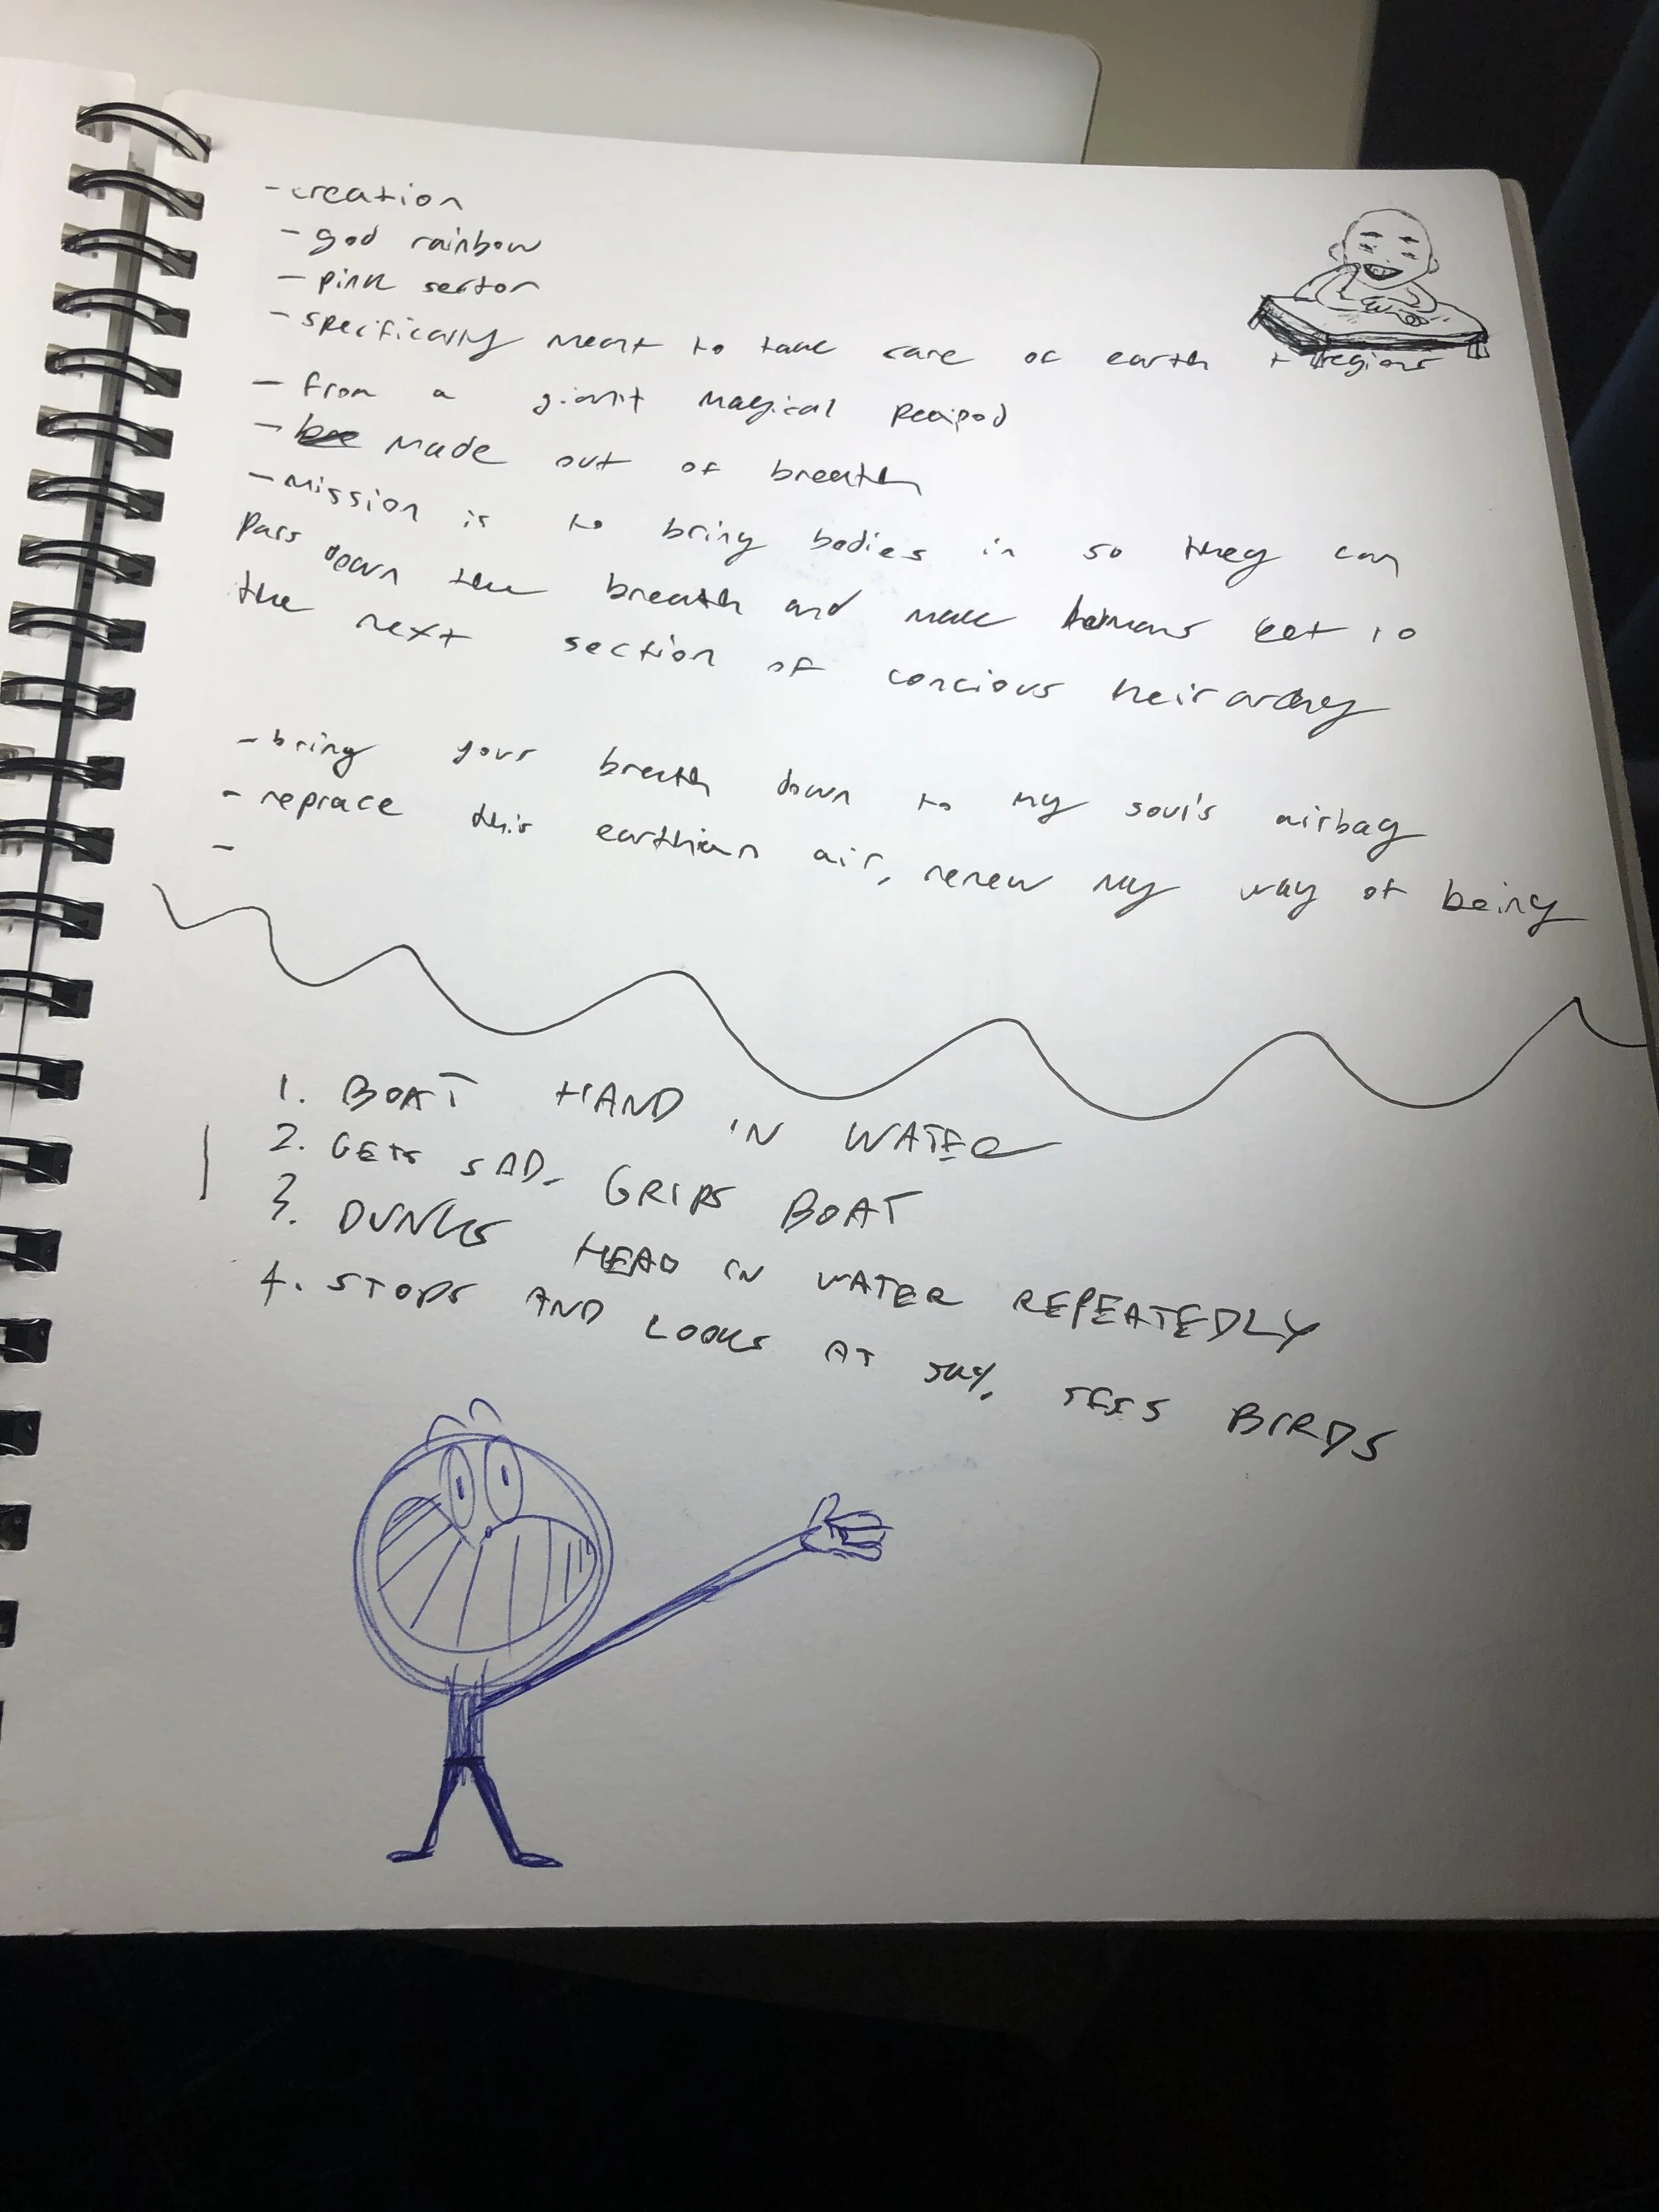 - creation
- god rainbow
- pink sector
- specifically meant to take care of earth + regions
- from a giant magical peapod
- made out of breath
- mission is to bring bodies in so they can
pass down the breath and make humans get to
the next section of concious heirarchy
- bring your breath down to my soul's airbag
- reprace this earthian air, renew my way of being
-
1. BOAT HAND IN WATER
2. GETS SAD. GRIPS BOAT
3. DUNKS HEAD IN WATER REPEATEDLY
4. STOPS AND LOOKS AT SKY. SEES BIRDS